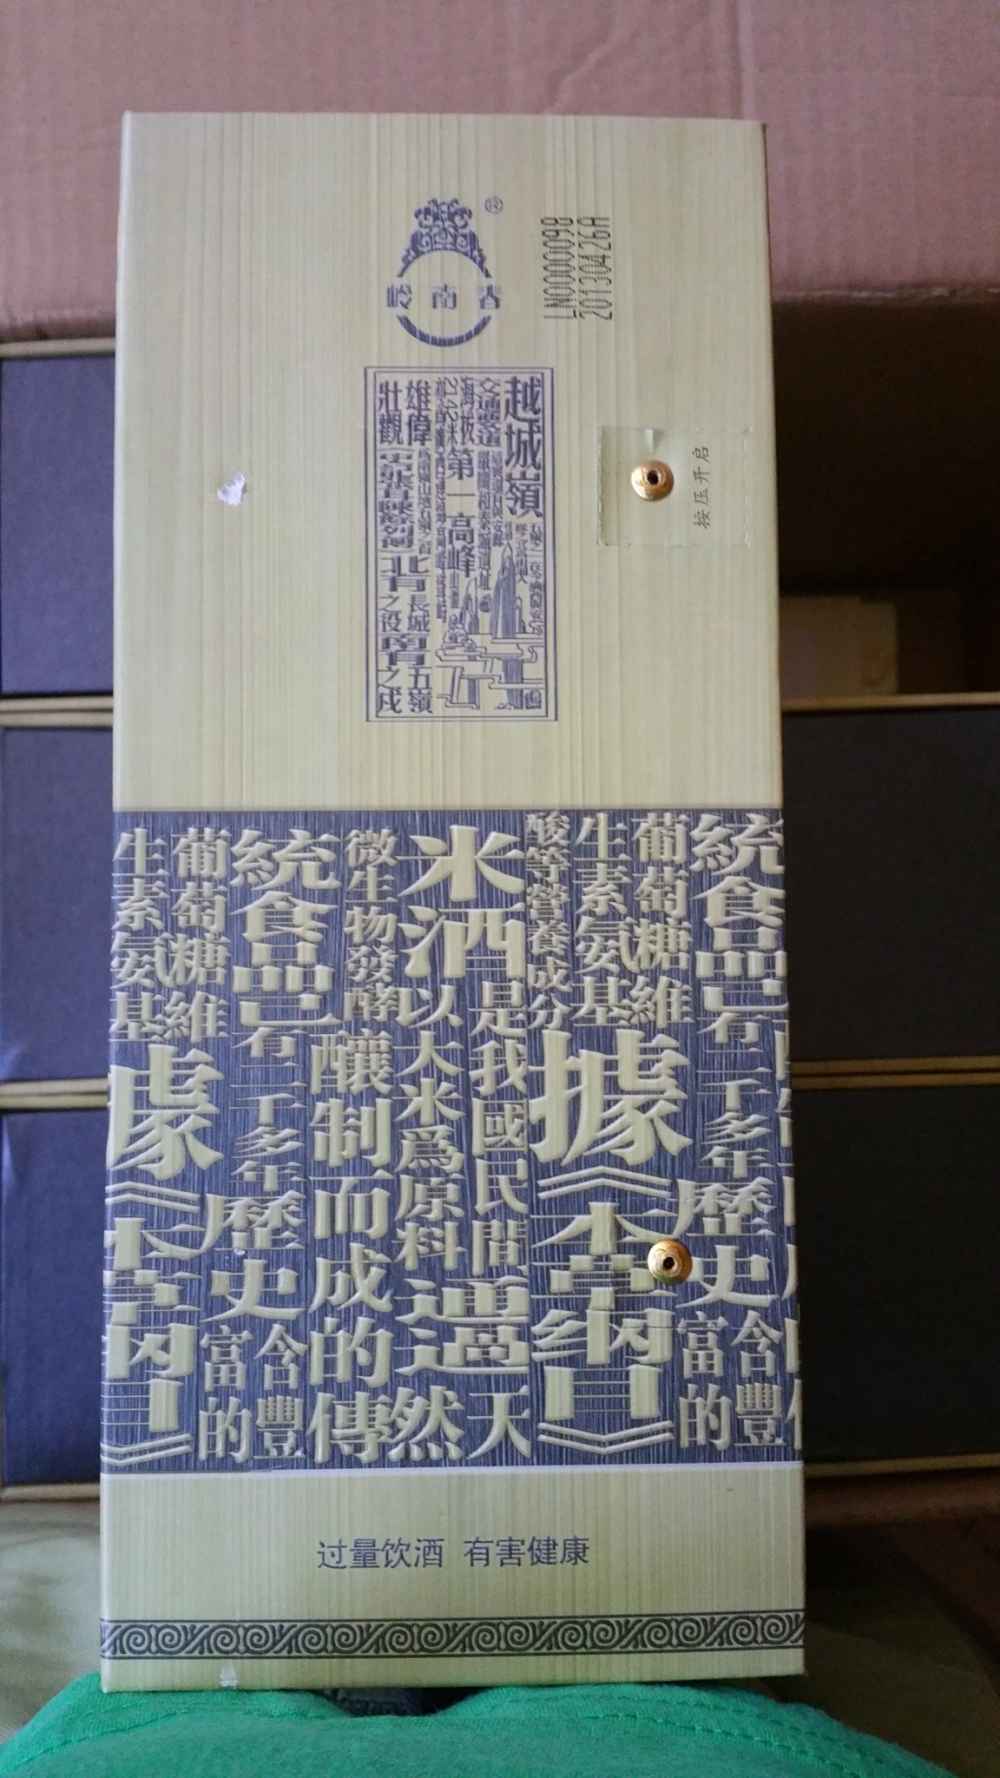 岭南香
®
LN0000098
20130426A
越城嶺
交通要道
海拔
2142米
第一高峰
雄偉
壯觀
北有長城之役
南有五嶺之戍
按压开启
統食品已有二千多年歷史
含豐富的
葡萄糖維
生素氨基
酸等營養成分
據《本草綱目》
米酒是我國民間
以大米爲原料
通過天然
微生物發酵
釀制而成的傳
統食品已有二千多年歷史
含豐富的
葡萄糖維
生素氨基
过量饮酒 有害健康